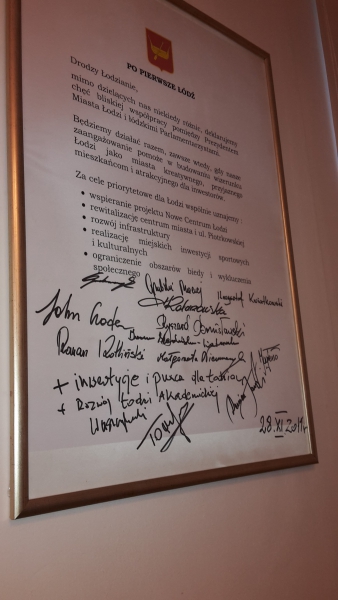 PO PIERWSZE ŁÓDŹ
Drodzy Łodzianie,
mimo dzielących nas niekiedy różnic, deklarujemy
chęć bliskiej współpracy pomiędzy Prezydentem
Miasta Łodzi i łódzkimi Parlamentarzystami.
Będziemy działać razem, zawsze wtedy, gdy nasze
zaangażowanie pomoże w budowaniu wizerunku
Łodzi jako miasta kreatywnego, przyjaznego
mieszkańcom i atrakcyjnego dla inwestorów.
Za cele priorytetowe dla Łodzi wspólnie uznajemy :
• wspieranie projektu Nowe Centrum Łodzi
• rewitalizację centrum miasta i ul. Piotrkowskiej
• rozwój infrastruktury
• realizację miejskich inwestycji sportowych
i kulturalnych
• ograniczenie obszarów biedy i wykluczenia
społecznego
Krzysztof Kwiatkowski
John Godson
Roman Kotliński
Małgorzata
+ inwestycje i praca dla łodzian
+ Rozwój Łodzi Akademickiej
28.XI 2011r